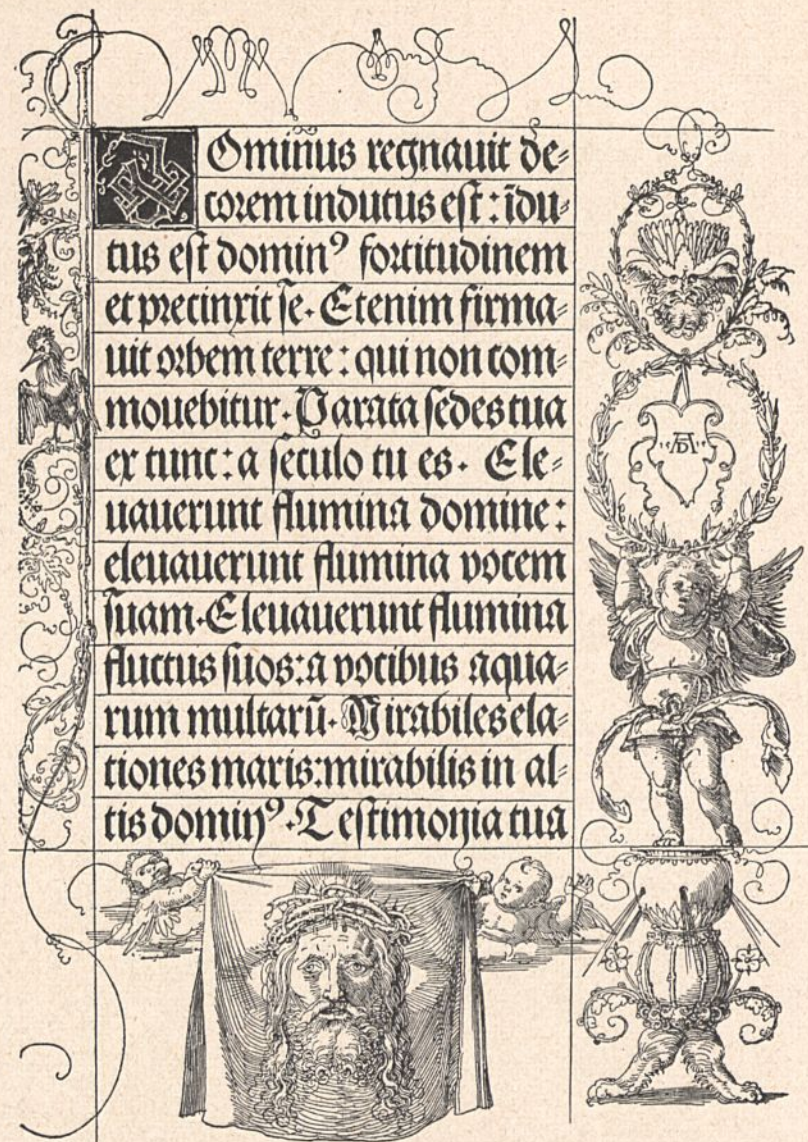 DOminus regnauit de⸗
corem indutus est : īdu⸗
tus est dominꝰ fortitudinem
et precinxit se. Etenim firma⸗
uit orbem terre : qui non com⸗
mouebitur. Parata sedes tua
ex tunc : a seculo tu es. Ele⸗
uauerunt flumina domine :
eleuauerunt flumina vocem
suam. Eleuauerunt flumina
fluctus suos : a vocibus aqua⸗
rum multarū. Mirabiles ela⸗
tiones maris : mirabilis in al⸗
tis dominꝰ. Testimonia tua
AD